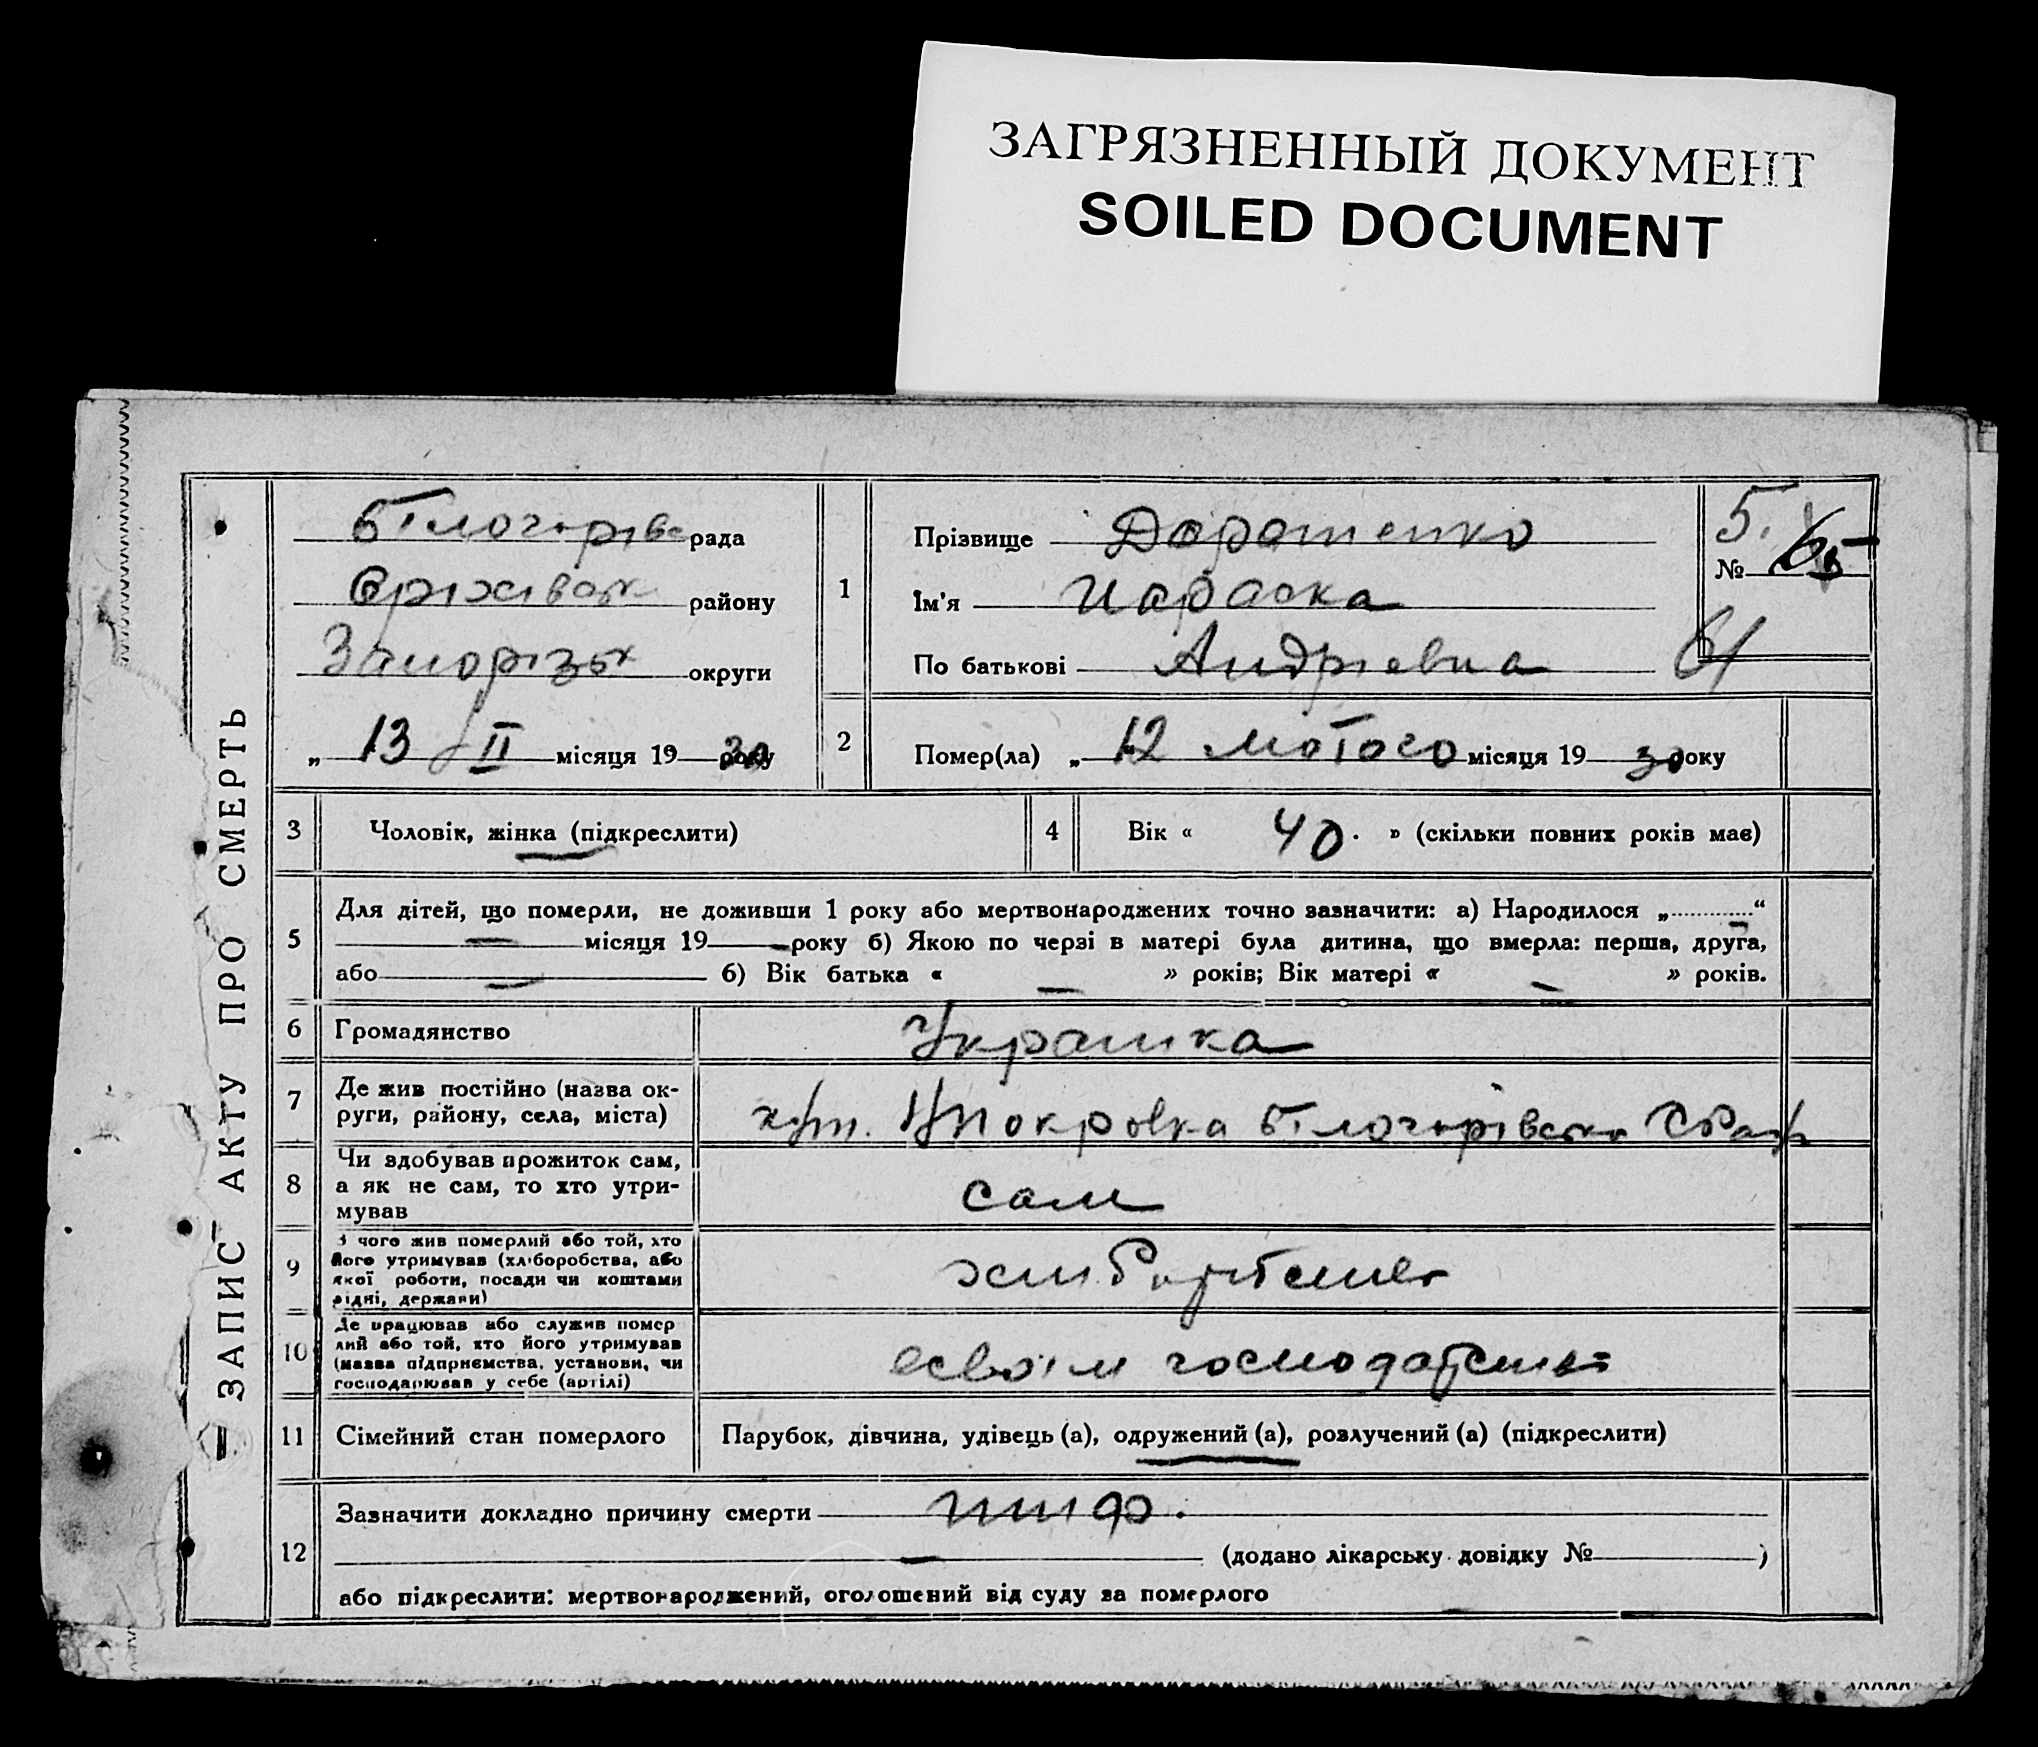 ЗАГРЯЗНЕННЫЙ ДОКУМЕНТ
SOILED DOCUMENT
ЗАПИС АКТУ ПРО СМЕРТЬ
рада
району
Запорізьк округи
„ 13 II місяця 19 30 року
1
Прізвище Дорошенко
Ім'я Параска
По батькові Андрієвна
5.
№ 65
61
2
Помер(ла) „ 12 лютого місяця 19 30 року
3 Чоловік, жінка (підкреслити)
4 Вік « 40. » (скільки повних років має)
5
Для дітей, що померли, не доживши 1 року або мертвонароджених точно зазначити: а) Народилося „ — “
— місяця 19 — року б) Якою по черзі в матері була дитина, що вмерла: перша, друга,
або — б) Вік батька « — » років; Вік матері « — » років.
6 Громадянство Українка
7
Де жив постійно (назва ок-
руги, району, села, міста)
хут. Покровка Білогорівська
8
Чи здобував прожиток сам,
а як не сам, то хто утри-
мував
сам
9
З чого жив померлий або той, хто
його утримував (хліборобства, або
якої роботи, посади чи коштами
рідні, держави)
10
Де працював або служив помер
лий або той, хто його утримував
(назва підприємства, установи, чи
господарював у себе (артілі)
11 Сімейний стан померлого
Парубок, дівчина, удівець (а), одружений (а), розлучений (а) (підкреслити)
12
Зазначити докладно причину смерти тиф.
— (додано лікарську довідку № )
або підкреслити: мертвонароджений, оголошений від суду за померлого